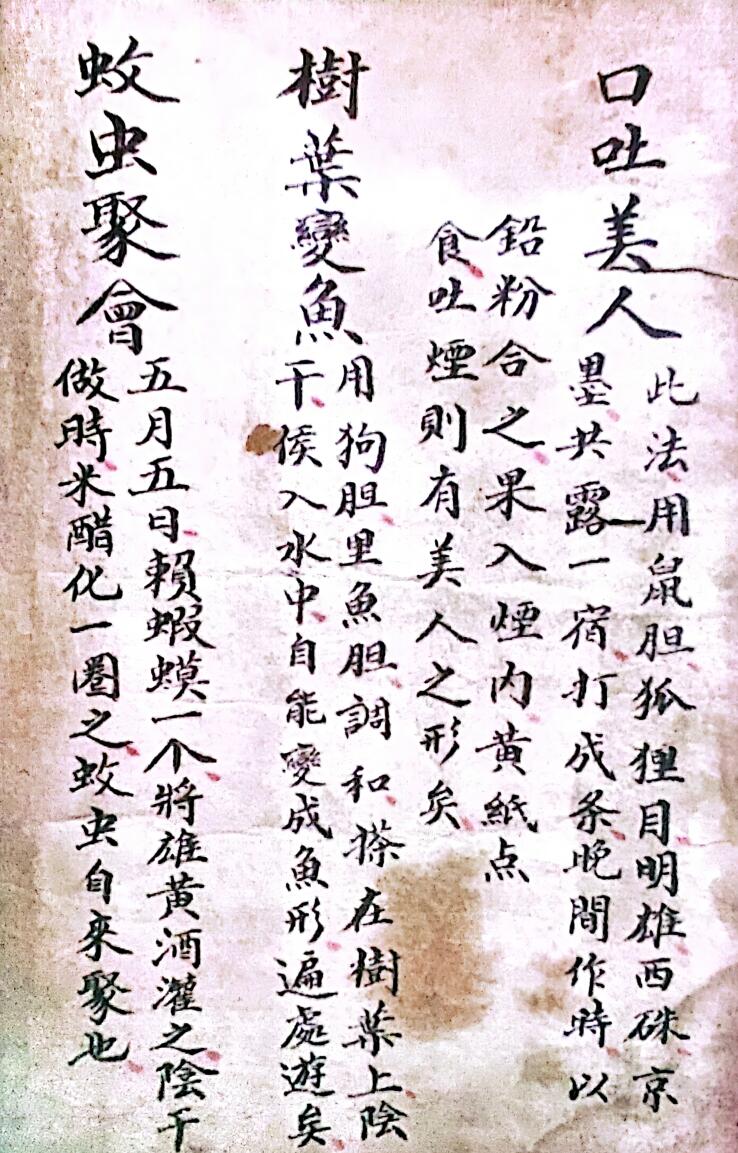 口吐美人
此法用鼠胆狐狸目明雄西硃京
墨共露一宿打成条晚間作時以
鉛粉合之果入煙内黄紙点
食吐煙則有美人之形矣
樹葉變魚
用狗胆里魚胆調和搽在樹葉上陰
干侯入水中自能變成魚形遍處遊矣
蚊虫聚會
五月五日賴蝦蟆一个將雄黄酒灌之陰干
做時米醋化一圈之蚊虫自来聚也